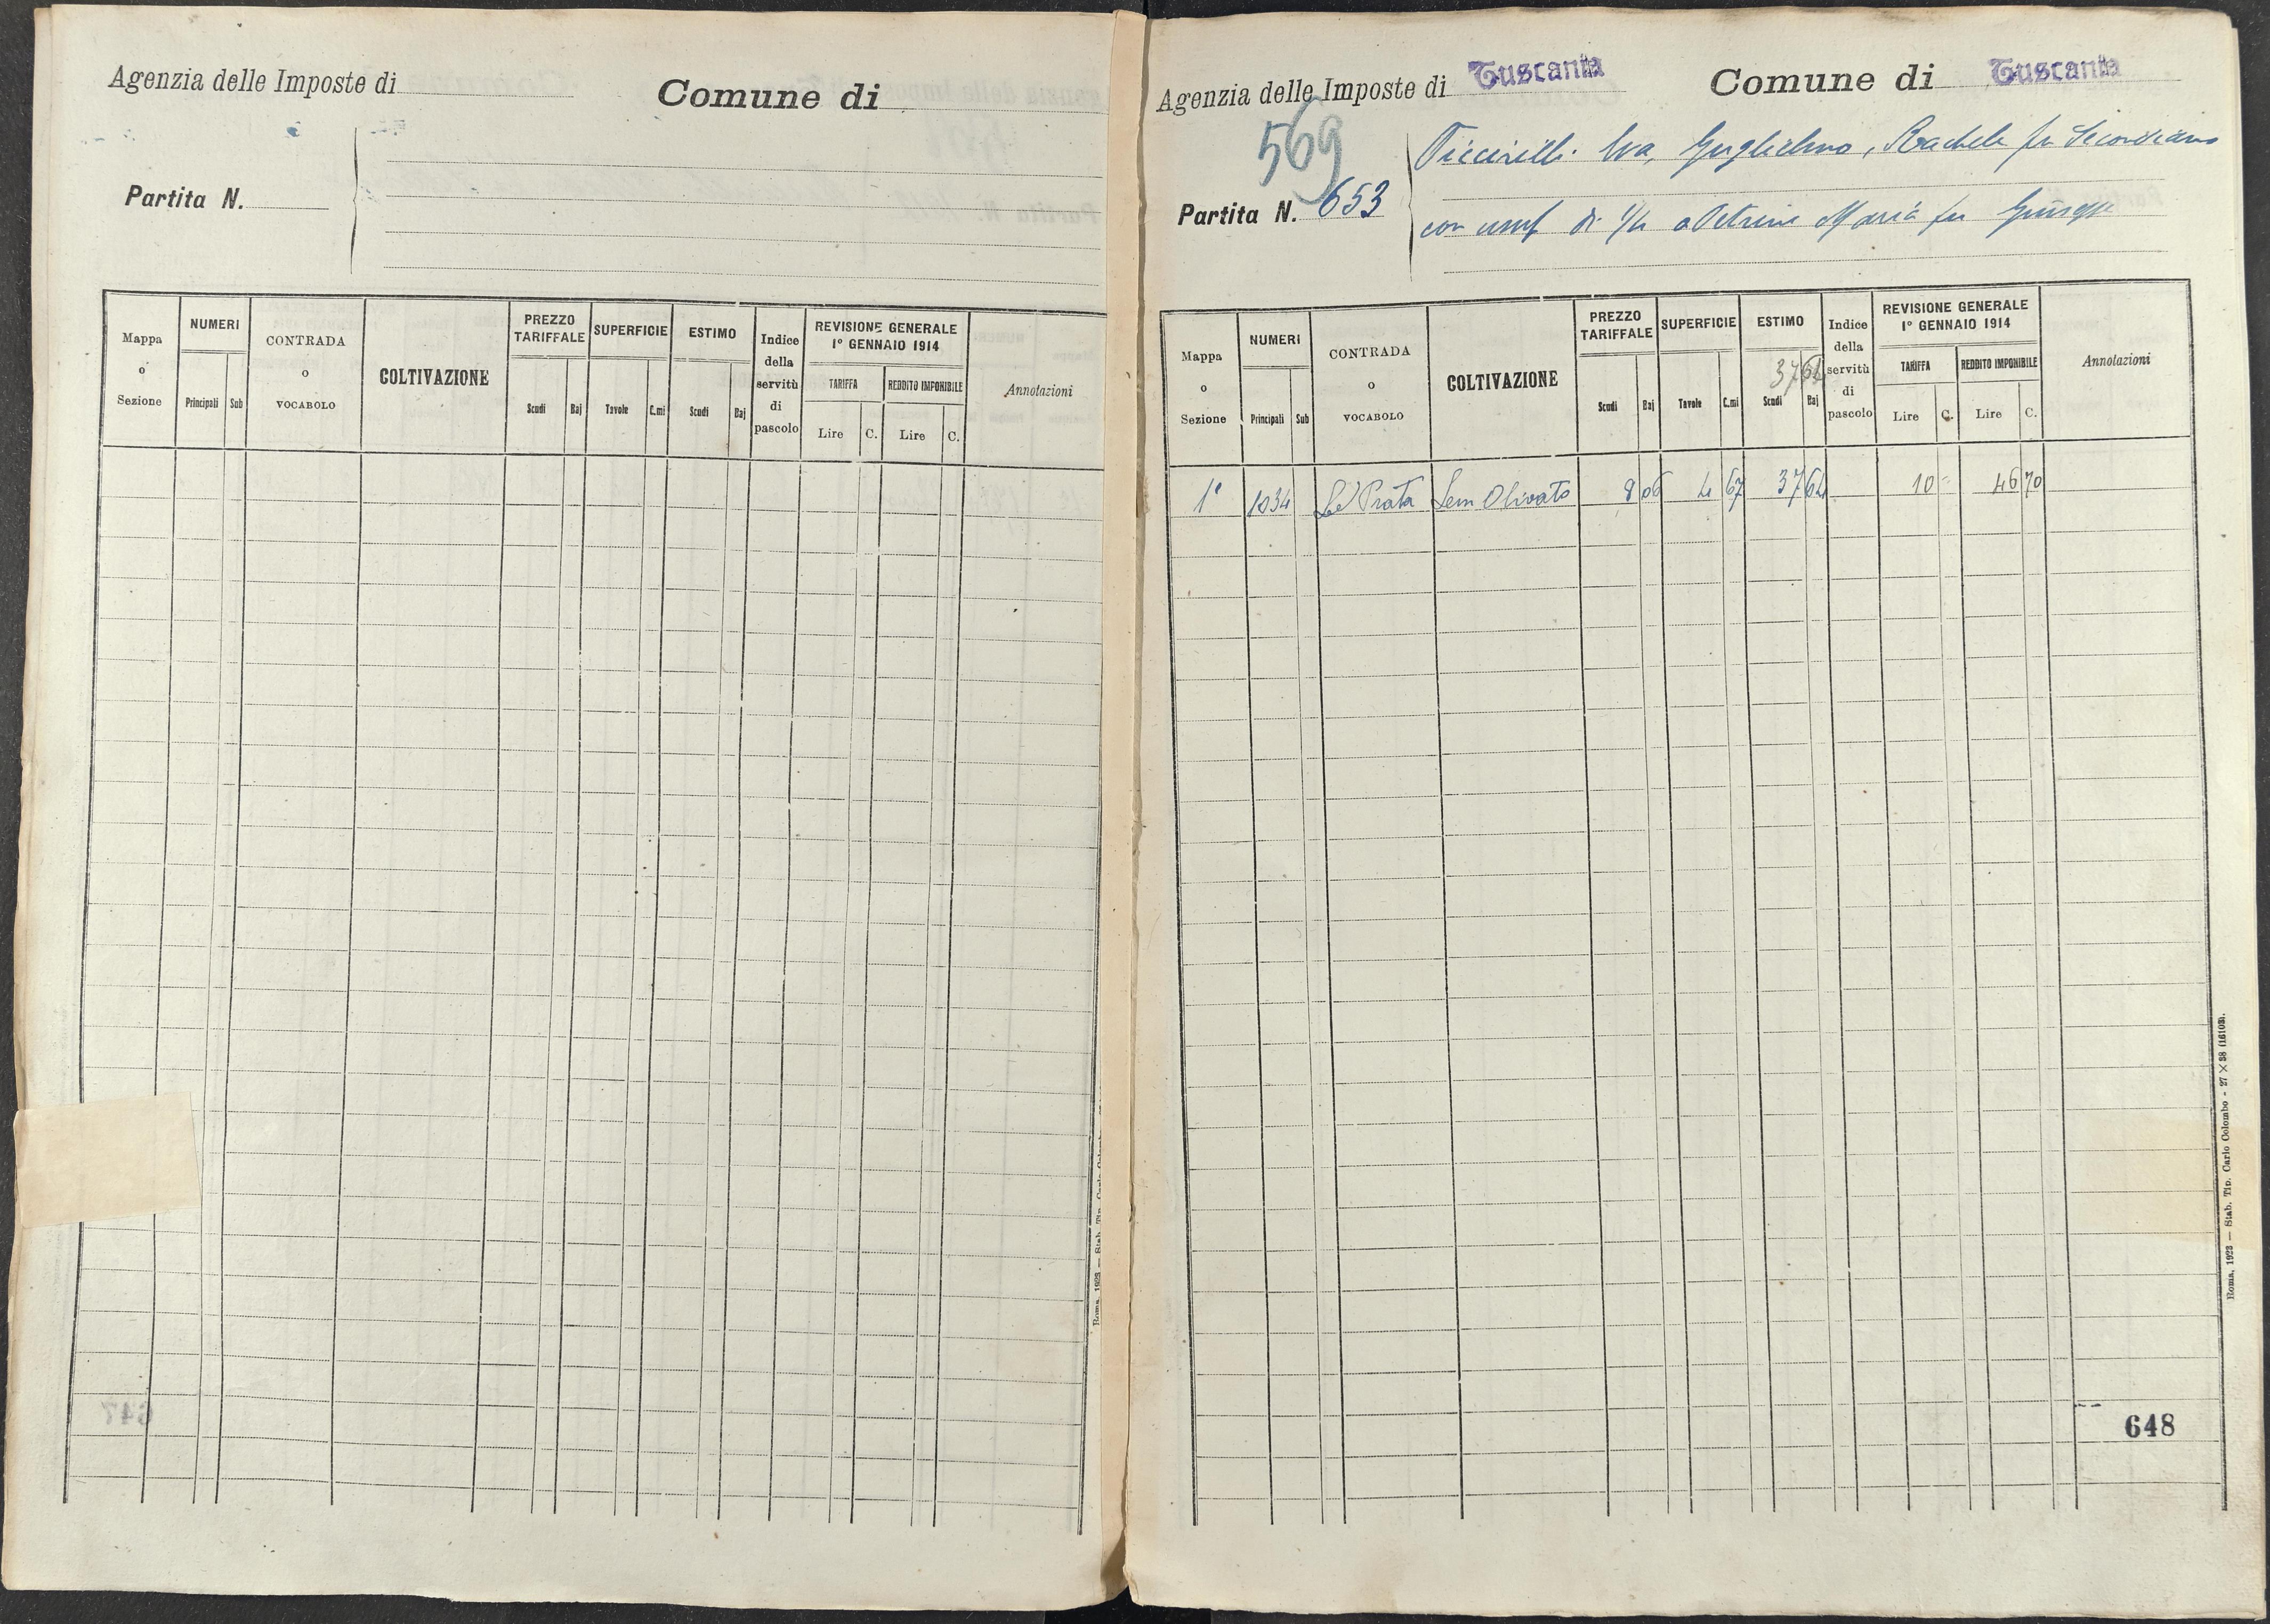 Agenzia delle Imposte di
Comune di
Partita N.
Mappa o Sezione
NUMERI
Principali Sub
CONTRADA o VOCABOLO
COLTIVAZIONE
PREZZO TARIFFALE
Scudi Baj
SUPERFICIE
Tavole C.mi
ESTIMO
Scudi Baj
Indice della servitù di pascolo
REVISIONE GENERALE
1° GENNAIO 1914
TARIFFA REDDITO IMPONIBILE
Lire C. Lire C.
Annotazioni
647
Agenzia delle Imposte di Tuscania Comune di Tuscania
569
Partita N. 653
Piccirilli Iva, Guglielmo, Rachele fu Secondiano
con usuf di 1/4 a Petrini Maria fu Giuseppe
Mappa o Sezione
NUMERI
Principali Sub
CONTRADA o VOCABOLO
COLTIVAZIONE
PREZZO TARIFFALE
Scudi Baj
SUPERFICIE
Tavole C.mi
ESTIMO
37 64
Scudi Baj
Indice della servitù di pascolo
REVISIONE GENERALE
1° GENNAIO 1914
TARIFFA REDDITO IMPONIBILE
Lire C. Lire C.
Annotazioni
1ª 1034 Le Prata Sem Olivato 8 06 4 67 37 64 10 - 46 70
648
Roma, 1923 — Stab. Tip. Carlo Colombo - 27 × 38 (16103).